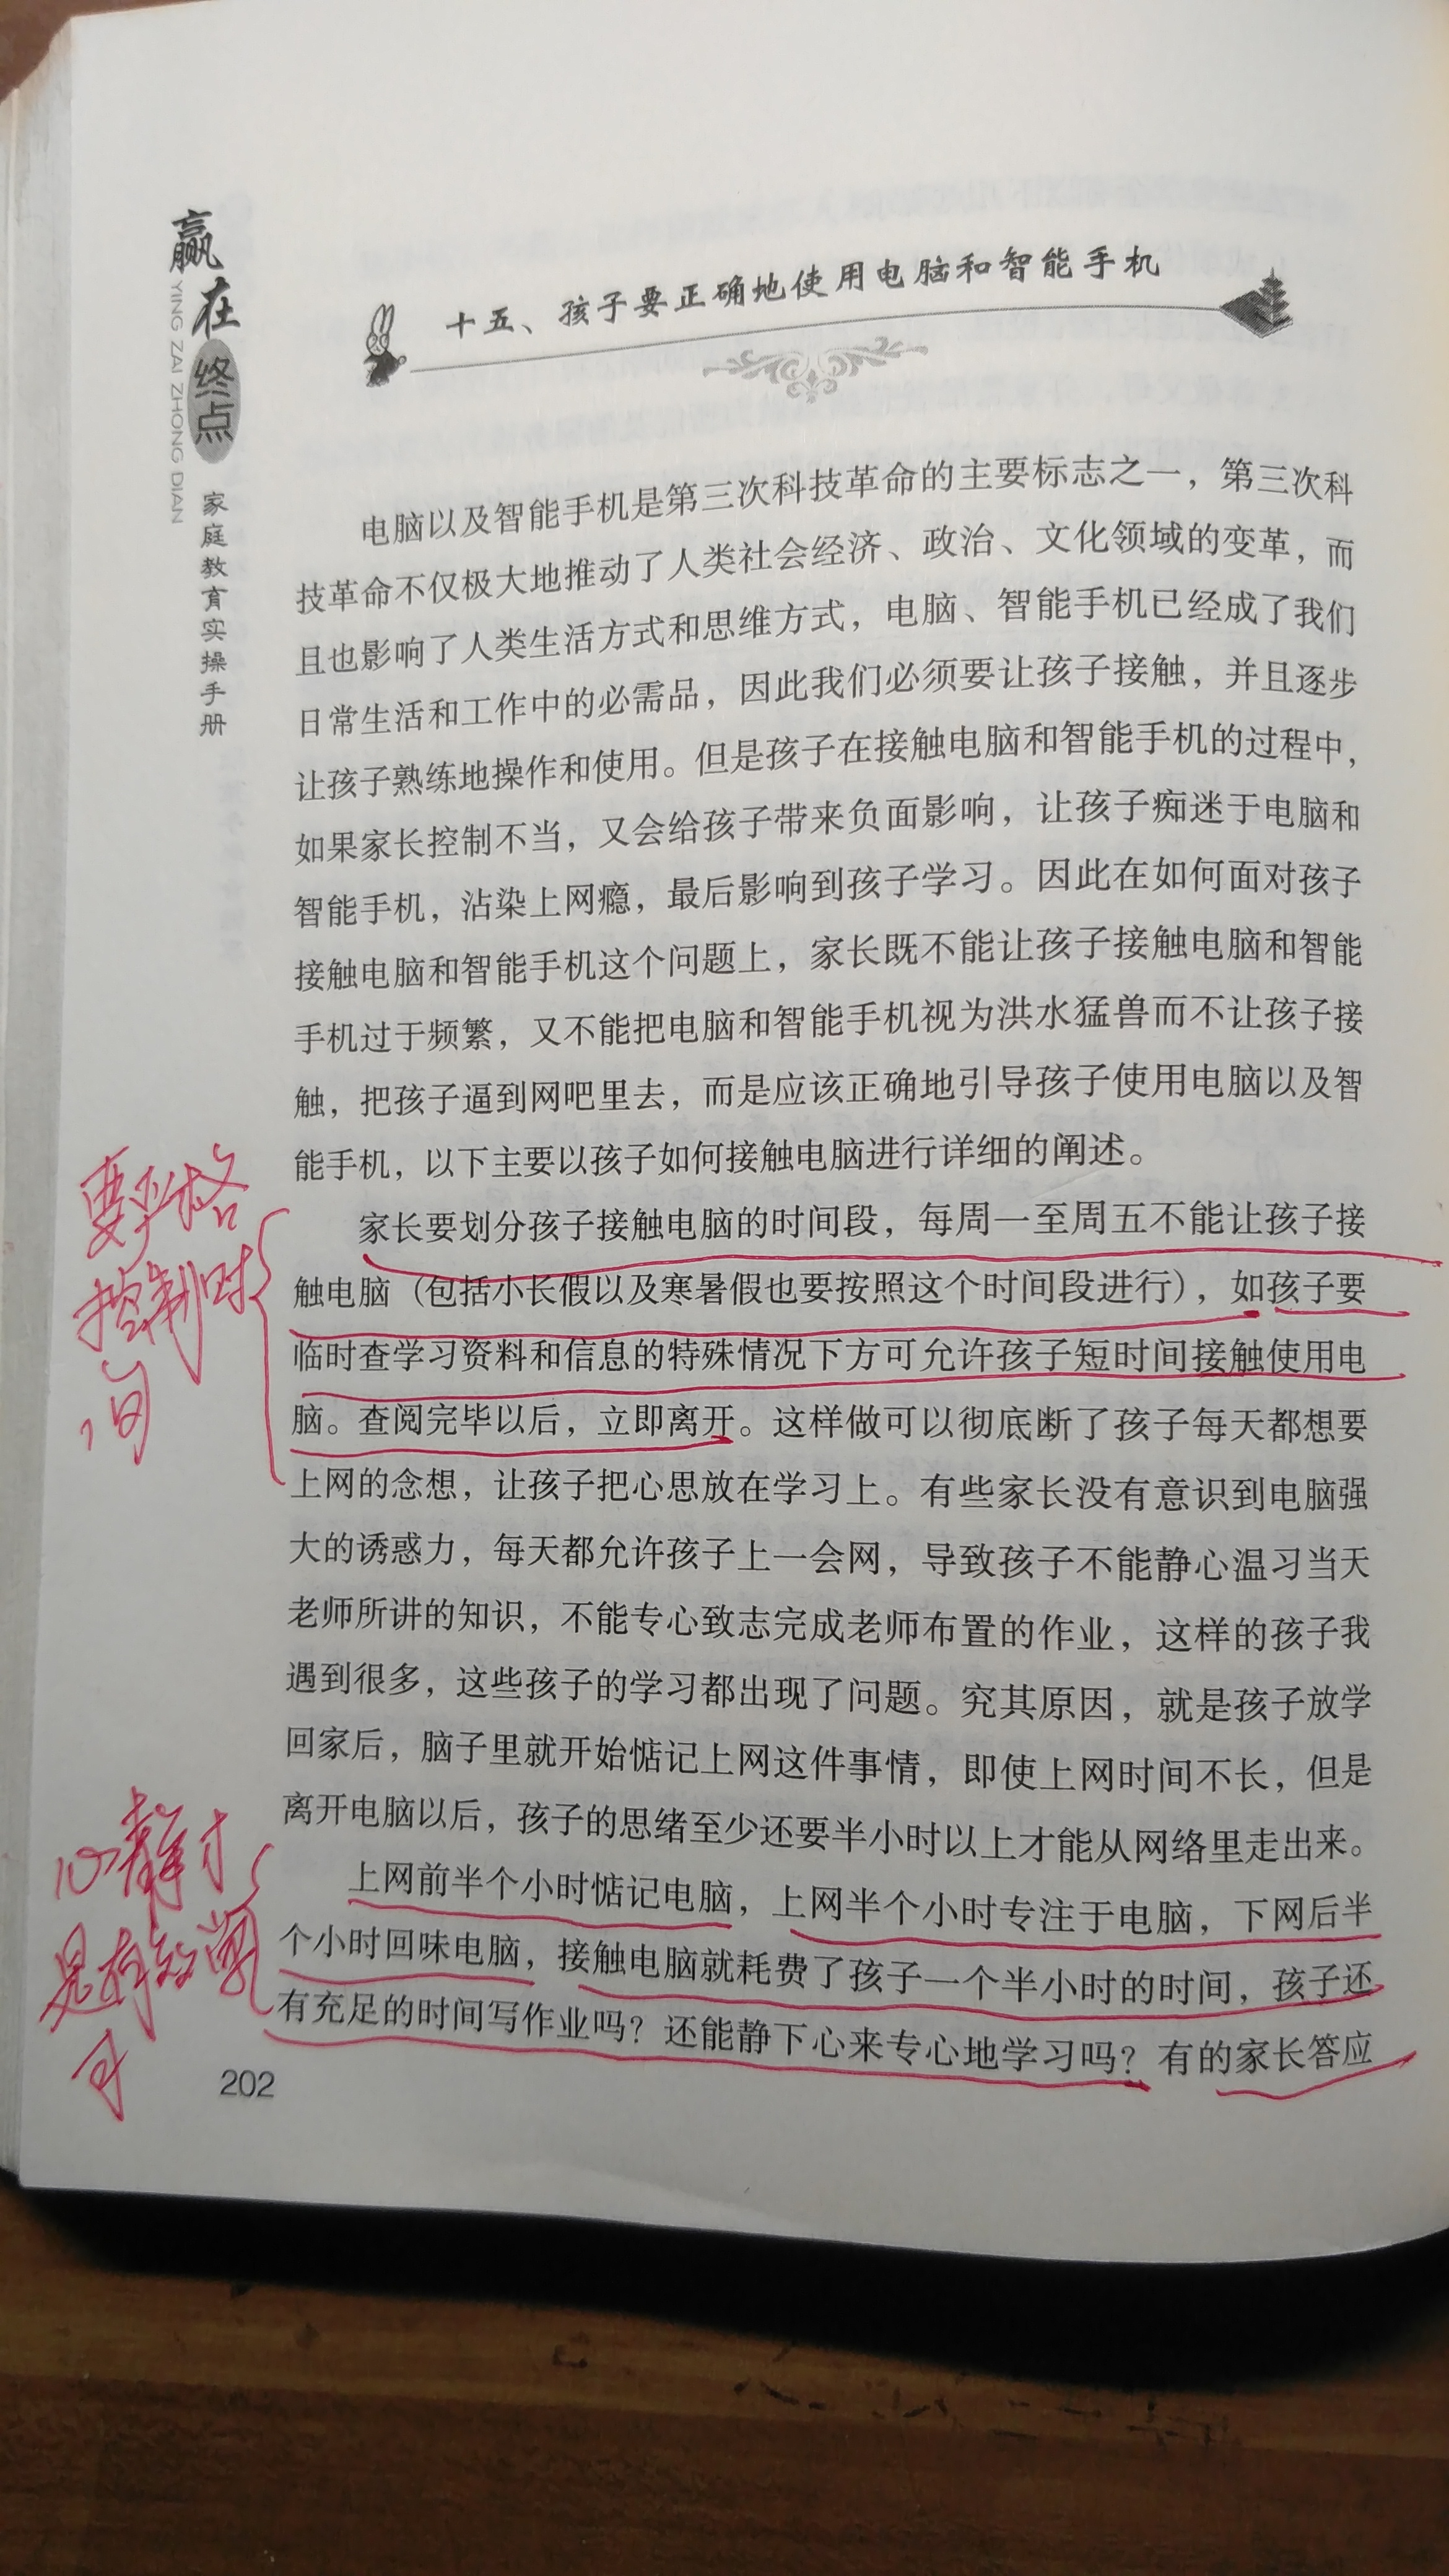 赢在终点
YING ZAI ZHONG DIAN
家庭教育实操手册
十五、孩子要正确地使用电脑和智能手机
电脑以及智能手机是第三次科技革命的主要标志之一，第三次科
技革命不仅极大地推动了人类社会经济、政治、文化领域的变革，而
且也影响了人类生活方式和思维方式，电脑、智能手机已经成了我们
日常生活和工作中的必需品，因此我们必须要让孩子接触，并且逐步
让孩子熟练地操作和使用。但是孩子在接触电脑和智能手机的过程中，
如果家长控制不当，又会给孩子带来负面影响，让孩子痴迷于电脑和
智能手机，沾染上网瘾，最后影响到孩子学习。因此在如何面对孩子
接触电脑和智能手机这个问题上，家长既不能让孩子接触电脑和智能
手机过于频繁，又不能把电脑和智能手机视为洪水猛兽而不让孩子接
触，把孩子逼到网吧里去，而是应该正确地引导孩子使用电脑以及智
能手机，以下主要以孩子如何接触电脑进行详细的阐述。
要严格
控制时
间
家长要划分孩子接触电脑的时间段，每周一至周五不能让孩子接
触电脑（包括小长假以及寒暑假也要按照这个时间段进行），如孩子要
临时查学习资料和信息的特殊情况下方可允许孩子短时间接触使用电
脑。查阅完毕以后，立即离开。这样做可以彻底断了孩子每天都想要
上网的念想，让孩子把心思放在学习上。有些家长没有意识到电脑强
大的诱惑力，每天都允许孩子上一会网，导致孩子不能静心温习当天
老师所讲的知识，不能专心致志完成老师布置的作业，这样的孩子我
遇到很多，这些孩子的学习都出现了问题。究其原因，就是孩子放学
回家后，脑子里就开始惦记上网这件事情，即使上网时间不长，但是
离开电脑以后，孩子的思绪至少还要半小时以上才能从网络里走出来。
心静才
是有效学
习
上网前半个小时惦记电脑，上网半个小时专注于电脑，下网后半
个小时回味电脑，接触电脑就耗费了孩子一个半小时的时间，孩子还
有充足的时间写作业吗？还能静下心来专心地学习吗？有的家长答应
202